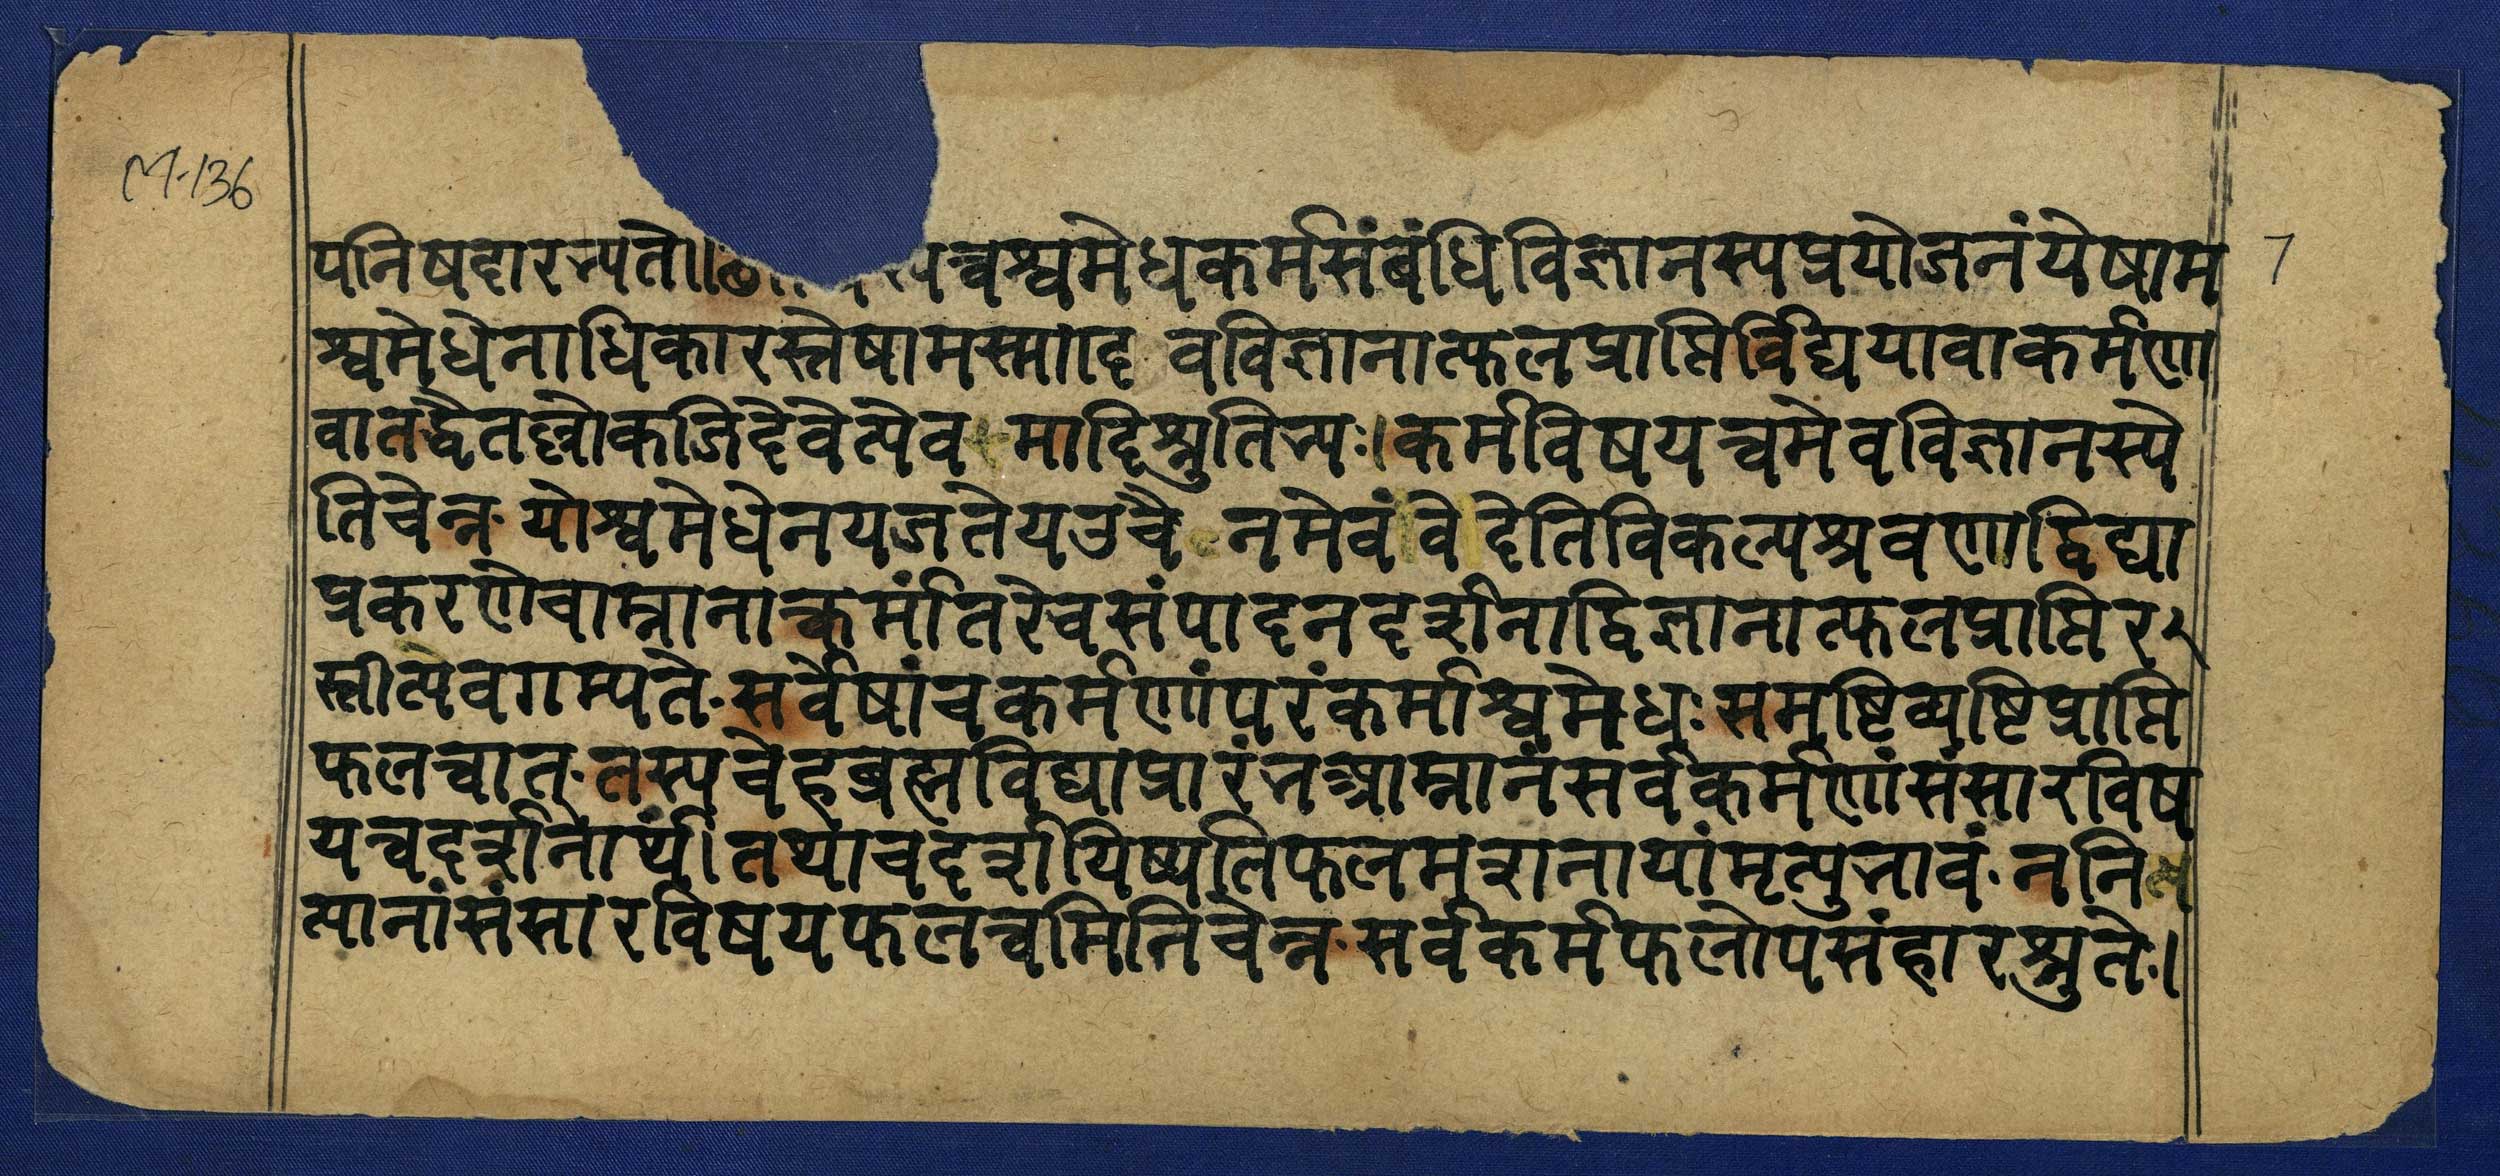 M-136
पनिषदारभ्यते॥ त्वश्वमेधकर्मसंबंधिविज्ञानस्यप्रयोजनंयेषाम
7
श्वमेधेनाधिकारस्तेषामस्मादे वविज्ञानात्फलप्राप्तिर्विद्ययावाकर्मणा
वातद्धैतल्लोकजिदेवेत्येव मादिश्रुतिभ्यः।कर्मविषयत्वमेवविज्ञानस्ये
तिचेन्न योश्वमेधेनयजतेयउचै नमेवंवेदेतिविकल्पश्रवणाद्विद्या
प्रकरणेचाम्नानात्कर्मांतरेचसंपादनदर्शनाद्विज्ञानात्फलप्राप्तिर
स्तीत्येवगम्यते सर्वेषांचकर्मणांपरंकर्माश्वमेधः समष्टिव्यष्टिप्राप्ति
फलत्वात् तस्यचेहब्रह्मविद्याप्रारंभआम्नानंसर्वकर्मणांसंसारविष
यत्वदर्शनार्थं।तथाचदर्शयिष्यतिफलमशनायामृत्युभावं ननि
त्यानांसंसारविषयफलत्वमितिचेन्न सर्वकर्मफलोपसंहारश्रुतेः।